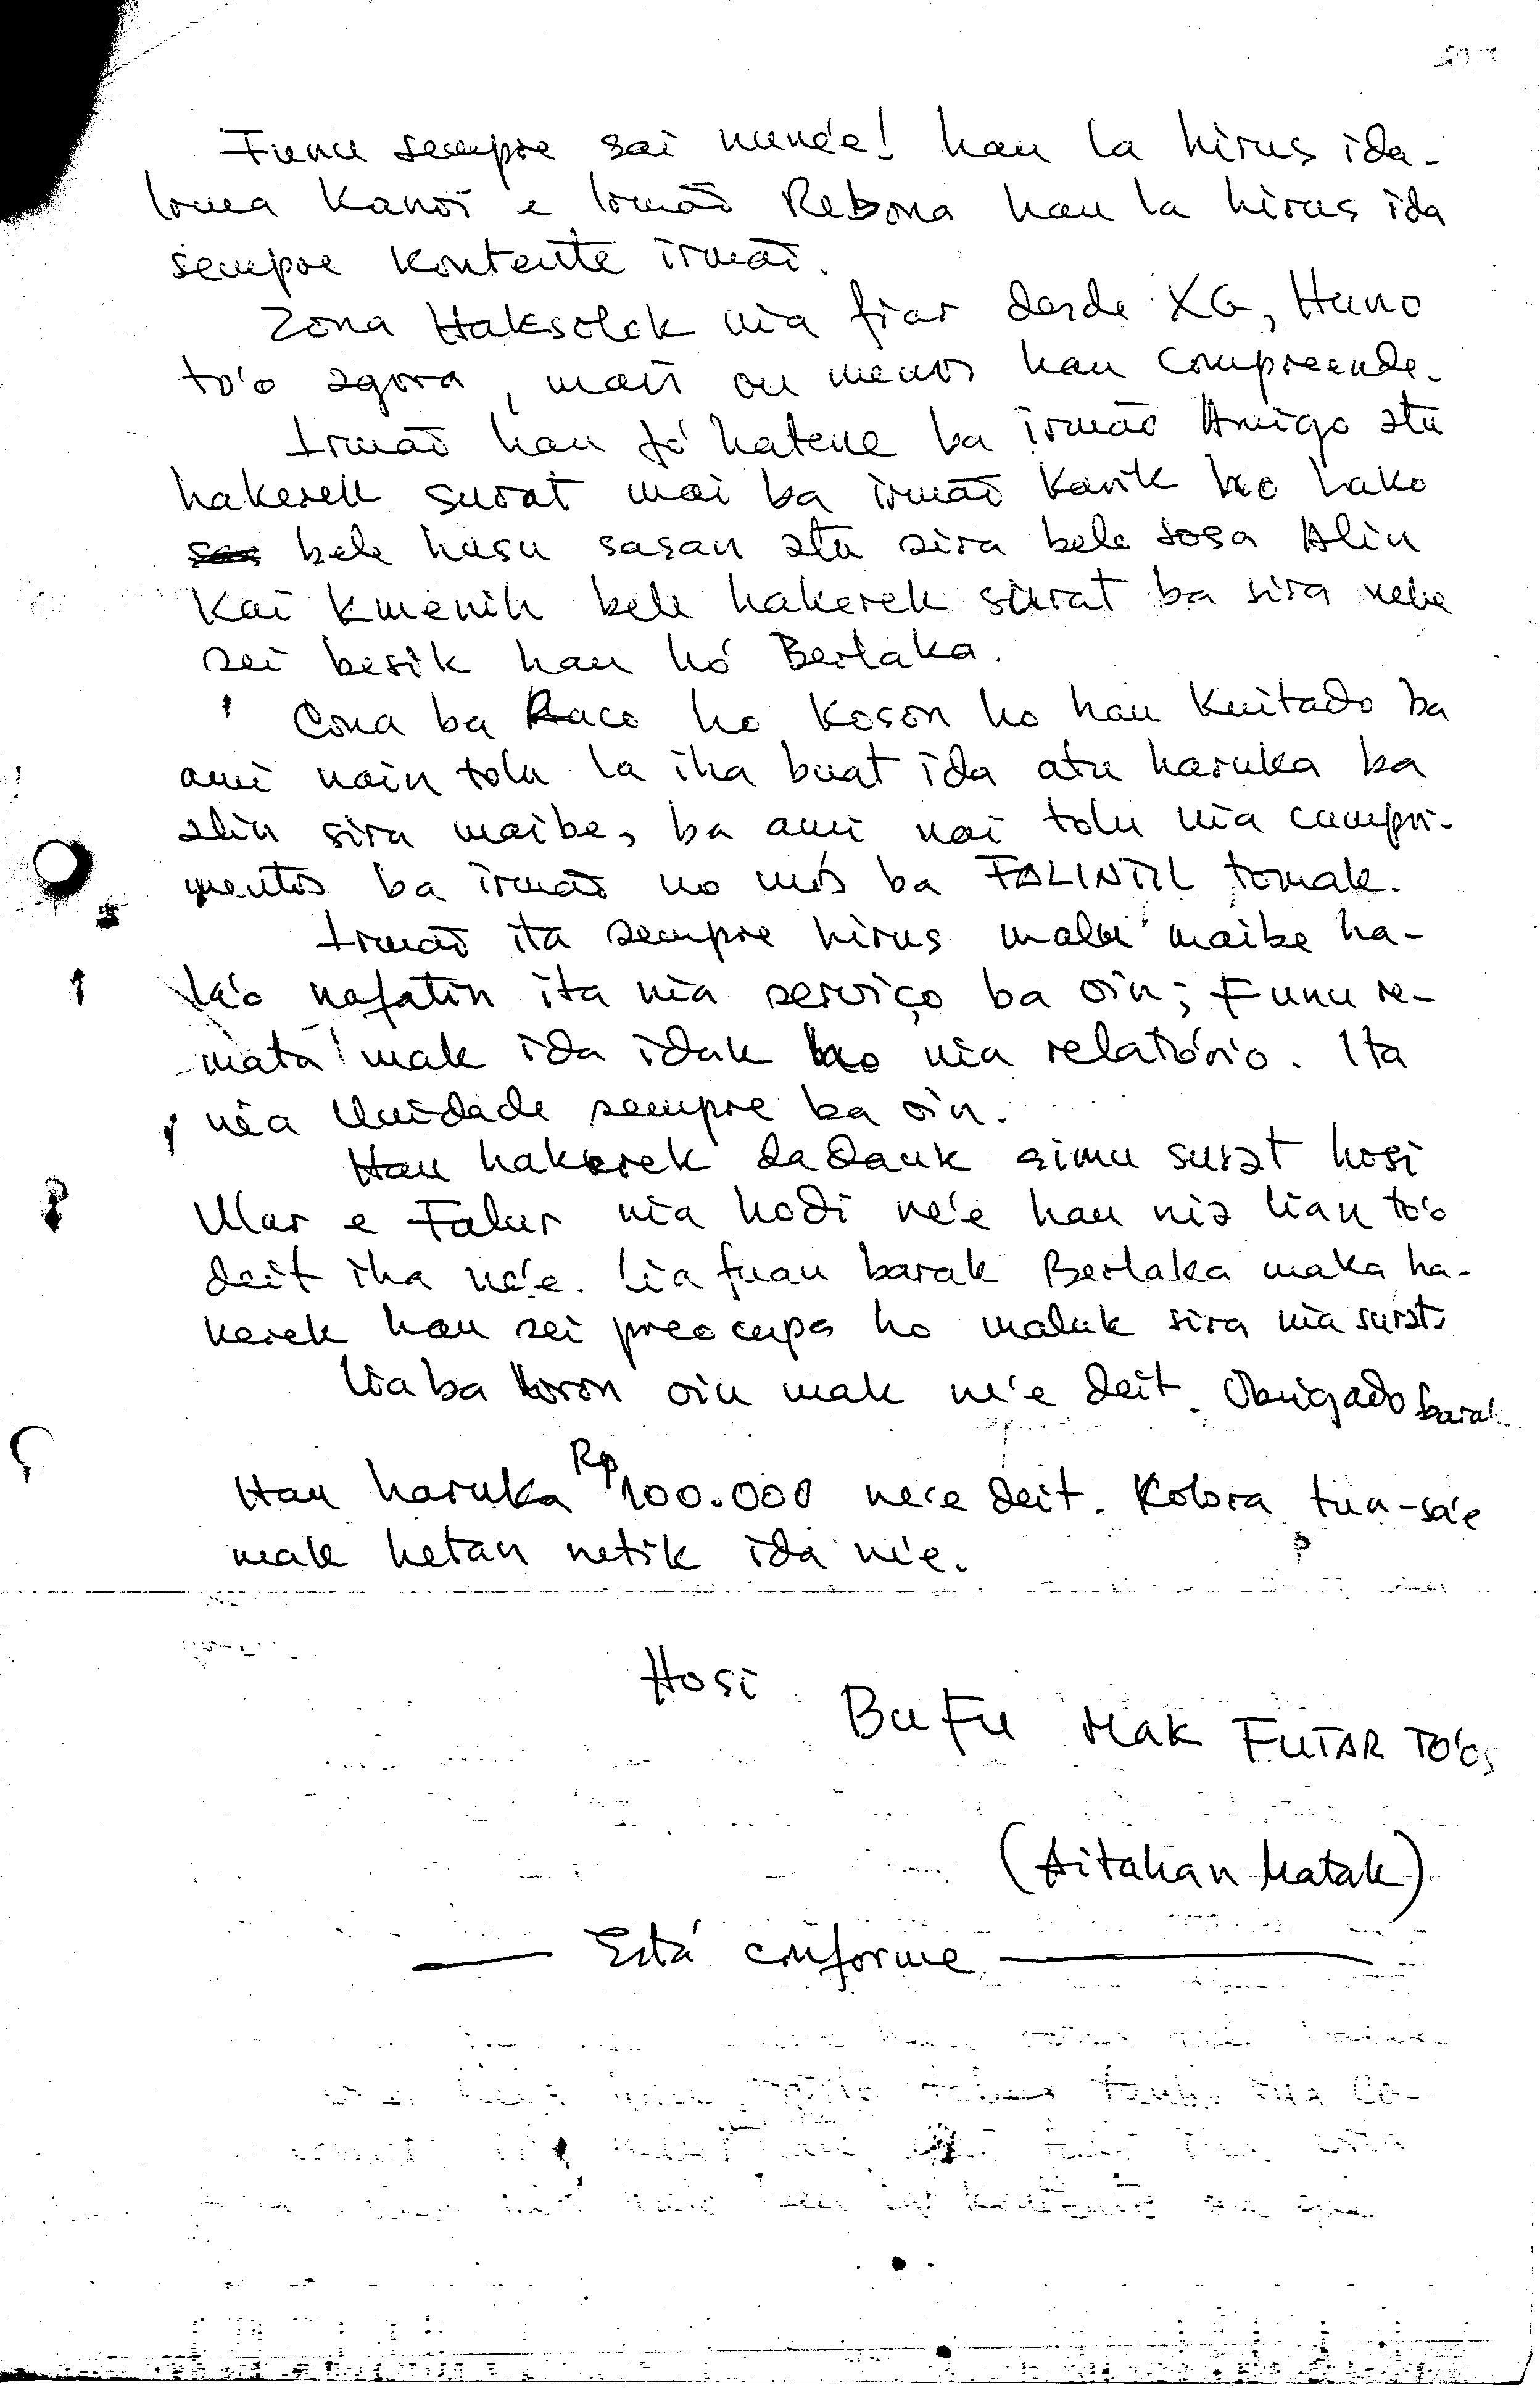 Funu sempre sai nuné'e! hau la hirus ida-
Irmã Kanoï e Irmão Rebona hau la hirus ida
sempre Kontente irmão.
Zona Haksolok nia fiar desde XG, Huno
to'o agora, mais ou menos hau compreende.
Irmão hau fó hatene ba irmão Amigo atu
hakerek surat mai ba irmão Karik ho Lako
bele husu sasan atu sira bele sosa Alin
Kai Kmenih bele hakerek surat ba sira nebe
sei besik hau hó Berlaka.
Cona ba Raco ho Koson ho hau Kuitado ba
ami nain tolu la iha buat ida atu haruka ba
alin sira maibe, ba ami nai tolu nia cumpri-
mentos ba irmão no mós ba FALINTIL tomak.
Irmão ita sempre hirus malu maibe ha-
la'o nafatin ita nia serviço ba oin; Funu re-
mata! mak ida idak ho nia relatório. Ita
nia Unidade sempre ba oin.
Hau hakerek dadauk simu surat hosi
Ular e Falur nia hodi ne'e hau nia lian to'o
deit iha ne'e. Lia fuan barak Berlaka maka ha-
kerek hau sei preocupa ho maluk sira nia surat.
Lia ba loron oin mak ne'e deit. Obrigado barak
Hau haruka Rp 100.000 ne'e deit. Kolora tua-sa'e
mak hetan netik ida ne'e.
Hosi BuFu Mak FUTAR TO'OS
(Aitahan Matak)
Está conforme